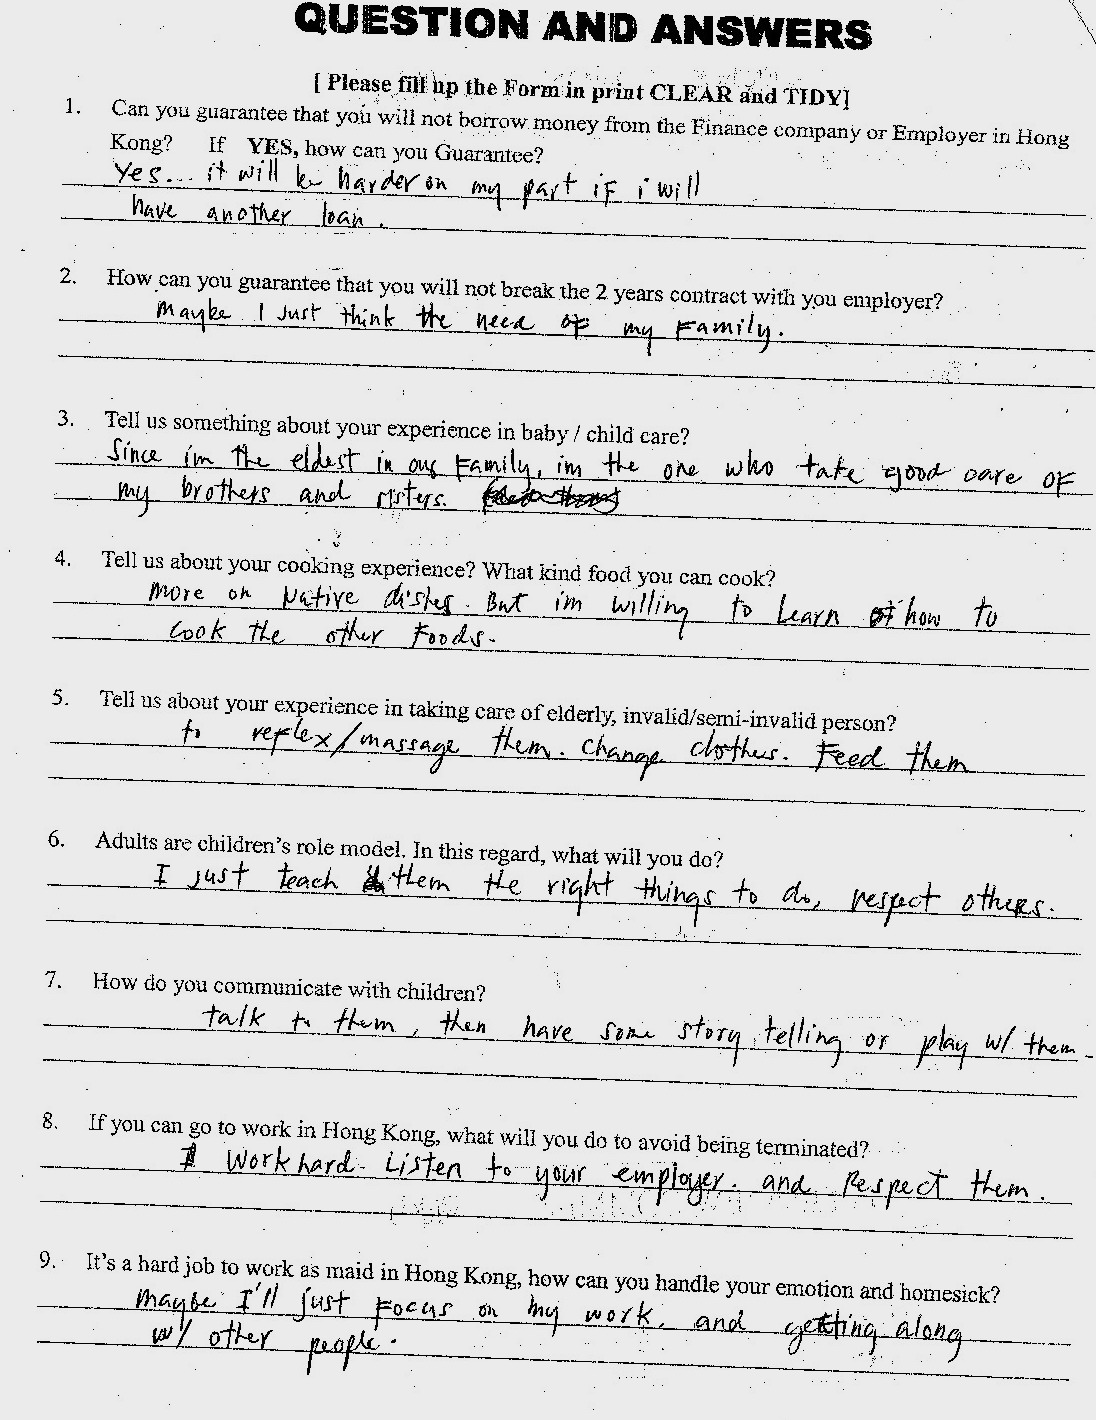 QUESTION AND ANSWERS
[ Please fill up the Form in print CLEAR and TIDY]
1. Can you guarantee that you will not borrow money from the Finance company or Employer in Hong
Kong? If YES, how can you Guarantee?
Yes... it will be harder on my part if i will
have another loan.
2. How can you guarantee that you will not break the 2 years contract with you employer?
Maybe I just think the need of my Family.
3. Tell us something about your experience in baby / child care?
Since im the eldest in our Family, im the one who take good care of
my brothers and sisters.
4. Tell us about your cooking experience? What kind food you can cook?
More on Native dishes. But im willing to Learn how to
cook the other Foods.
5. Tell us about your experience in taking care of elderly, invalid/semi-invalid person?
to reflex/massage them. Change clothes. Feed them
6. Adults are children's role model. In this regard, what will you do?
I just teach them the right things to do, respect others.
7. How do you communicate with children?
talk to them, then have some story telling or play w/ them.
8. If you can go to work in Hong Kong, what will you do to avoid being terminated?
I Work hard. Listen to your employer. and Respect them.
9. It's a hard job to work as maid in Hong Kong, how can you handle your emotion and homesick?
maybe I'll just Focus on my work. and getting along
w/ other people.